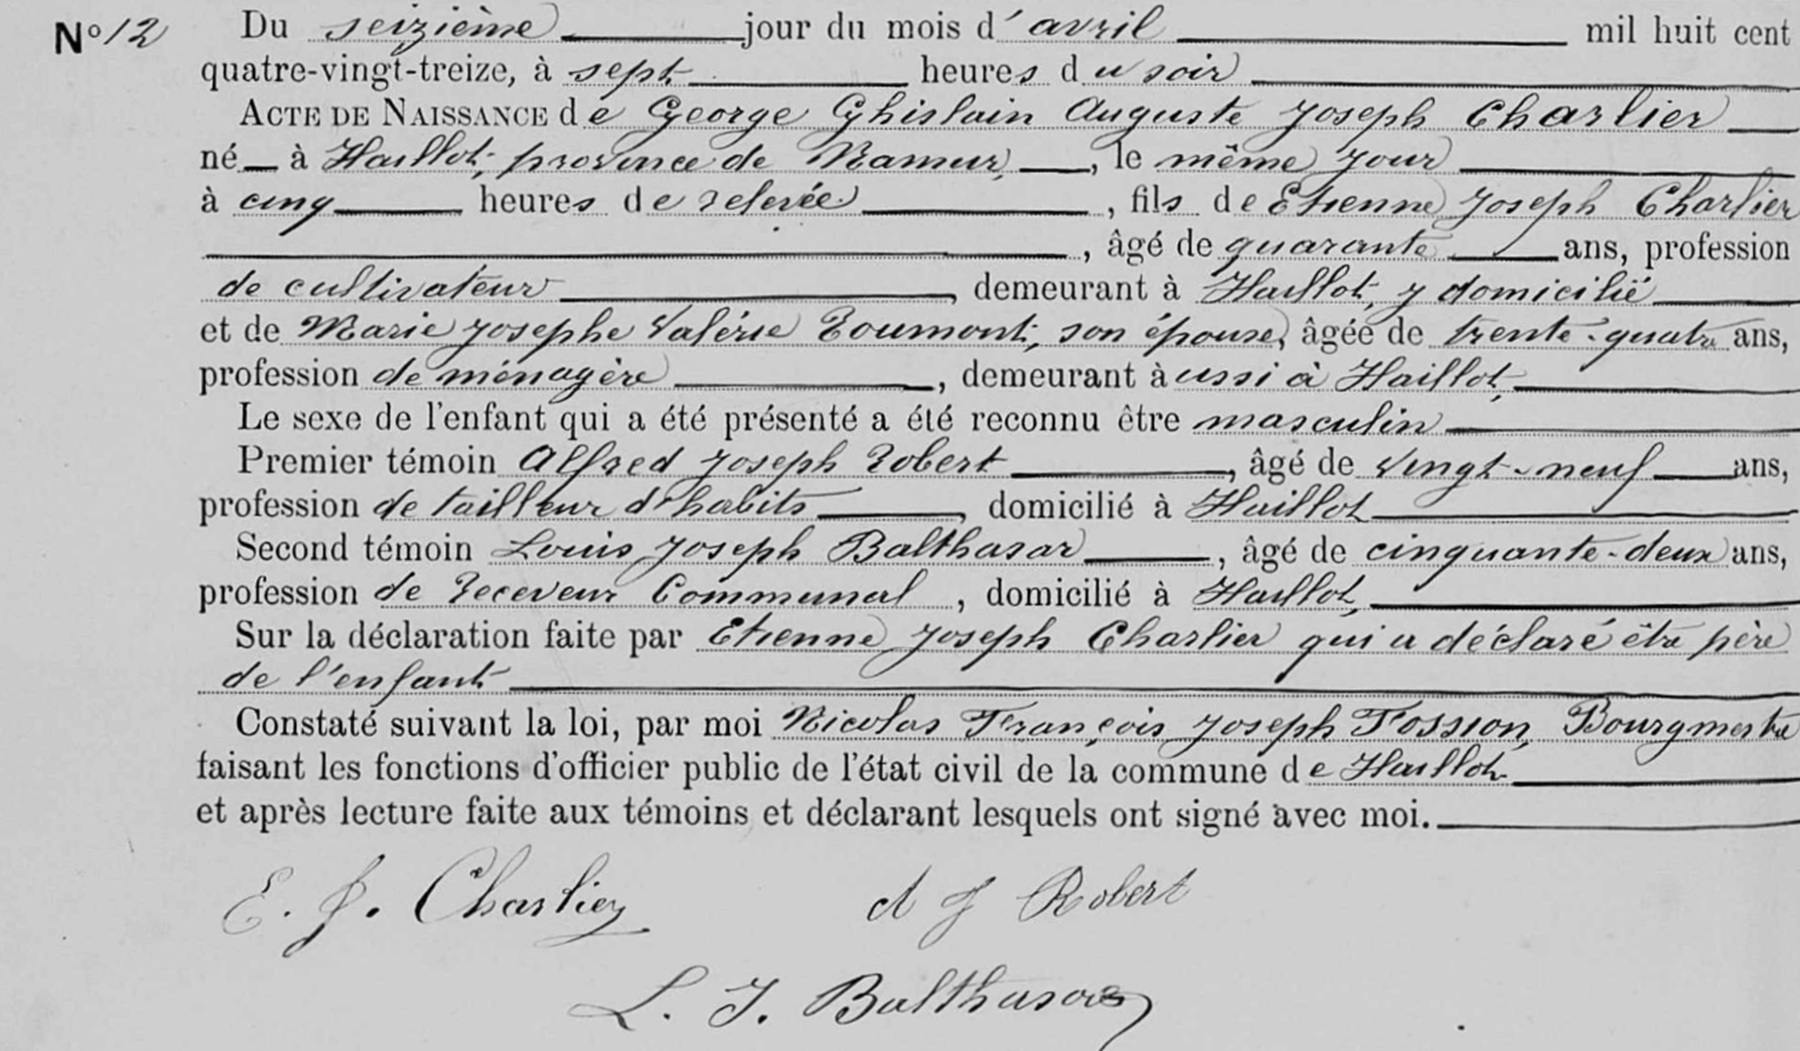 Nº 12 Du seizième jour du mois d'avril mil huit cent
quatre-vingt-treize, à sept heures du soir
ACTE DE NAISSANCE de George Ghislain Auguste Joseph Charlier
né à Haillot, province de Namur, le même jour
à cinq heures de relevée, fils de Etienne Joseph Charlier
, âgé de quarante ans, profession
de cultivateur, demeurant à Haillot, y domicilié
et de Marie Josephe Valérie Toumont, son épouse, âgée de trente-quatre ans,
profession de ménagère, demeurant àussi à Haillot,
Le sexe de l'enfant qui a été présenté a été reconnu être masculin
Premier témoin Alfred Joseph Robert, âgé de vingt-neuf ans,
profession de tailleur d'habits, domicilié à Haillot
Second témoin Louis Joseph Balthasar, âgé de cinquante-deux ans,
profession de Receveur Communal, domicilié à Haillot,
Sur la déclaration faite par Etienne Joseph Charlier qui a déclaré être père
de l'enfant
Constaté suivant la loi, par moi Nicolas François Joseph Fossion, Bourgmestre
faisant les fonctions d'officier public de l'état civil de la commune de Haillot
et après lecture faite aux témoins et déclarant lesquels ont signé avec moi.
E. J. Charlier A J Robert
L. J. Balthasar